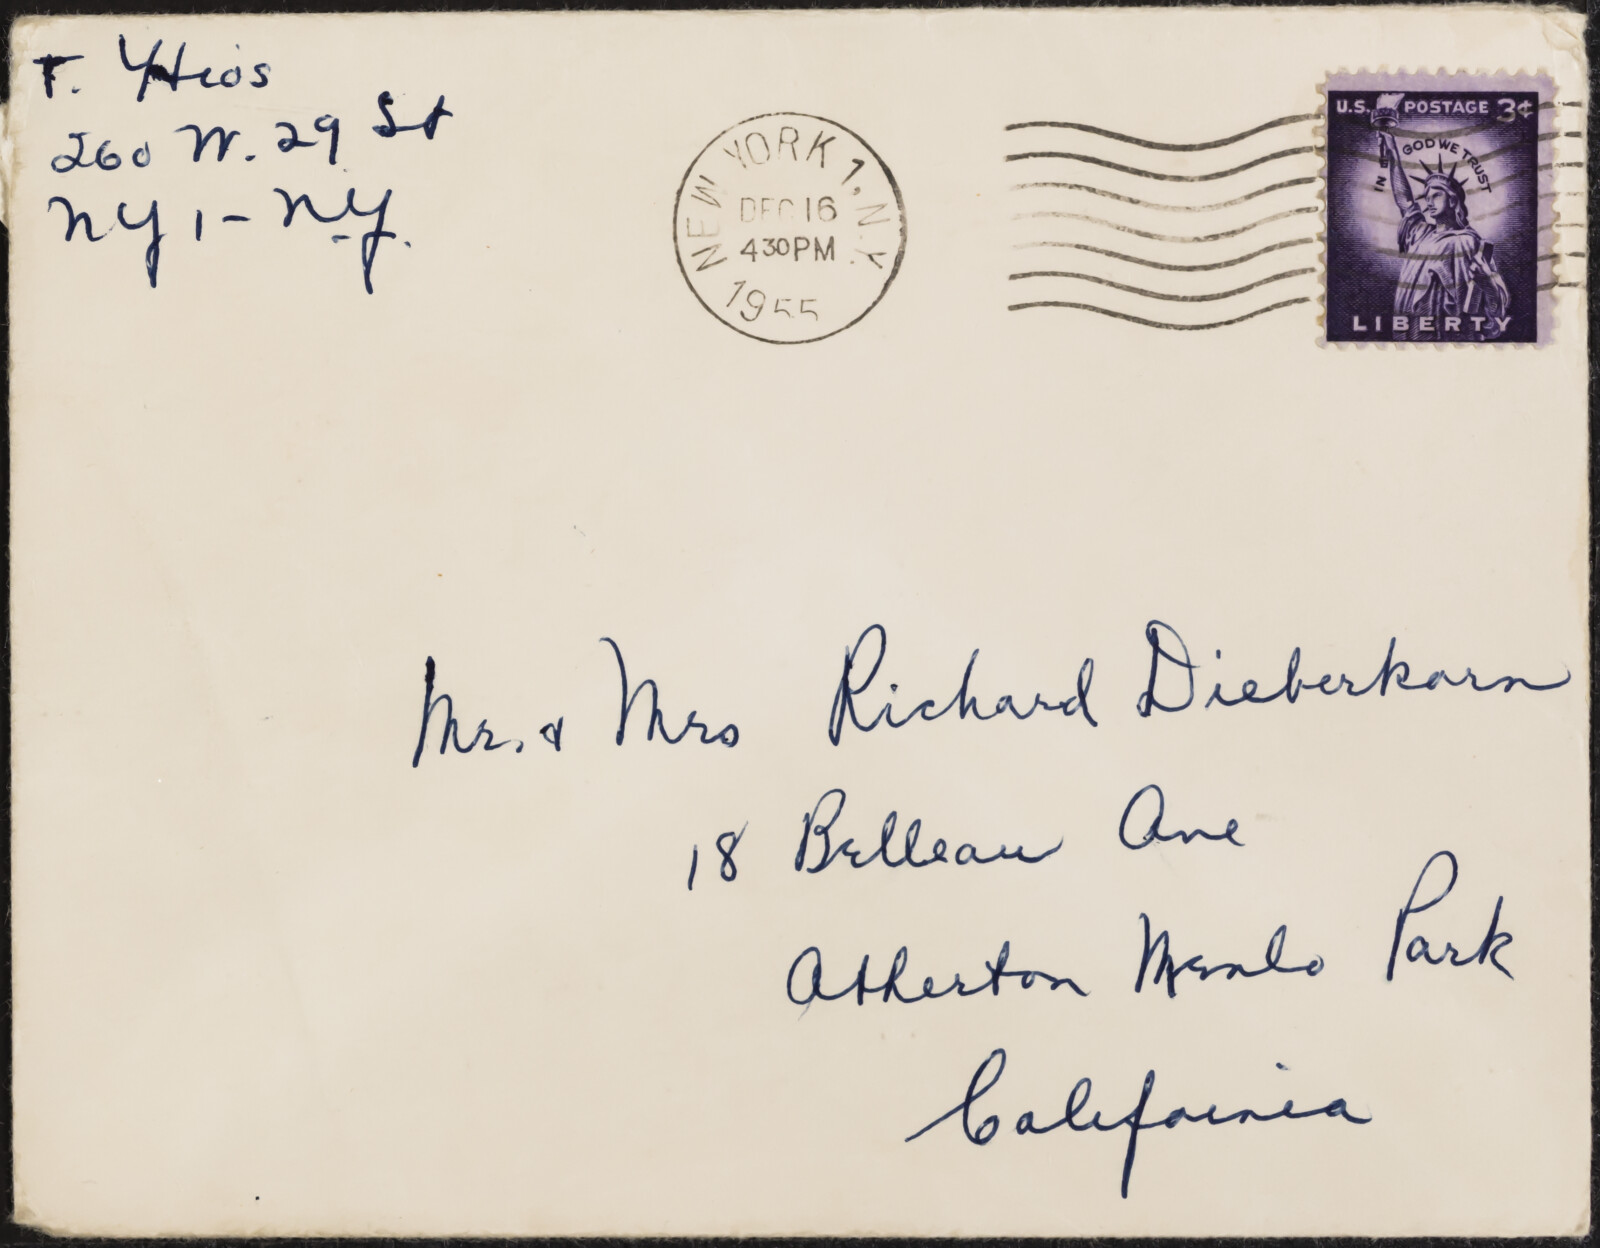 T. Ythios
260 W. 29 St
NY 1 - N.Y.
NEW YORK 1, N.Y.
DEC 16
4 30 PM
1955
U.S. POSTAGE 3¢
IN GOD WE TRUST
LIBERTY
Mr. & Mrs Richard Dieberkorn
18 Belleau Ave
Atherton Menlo Park
California